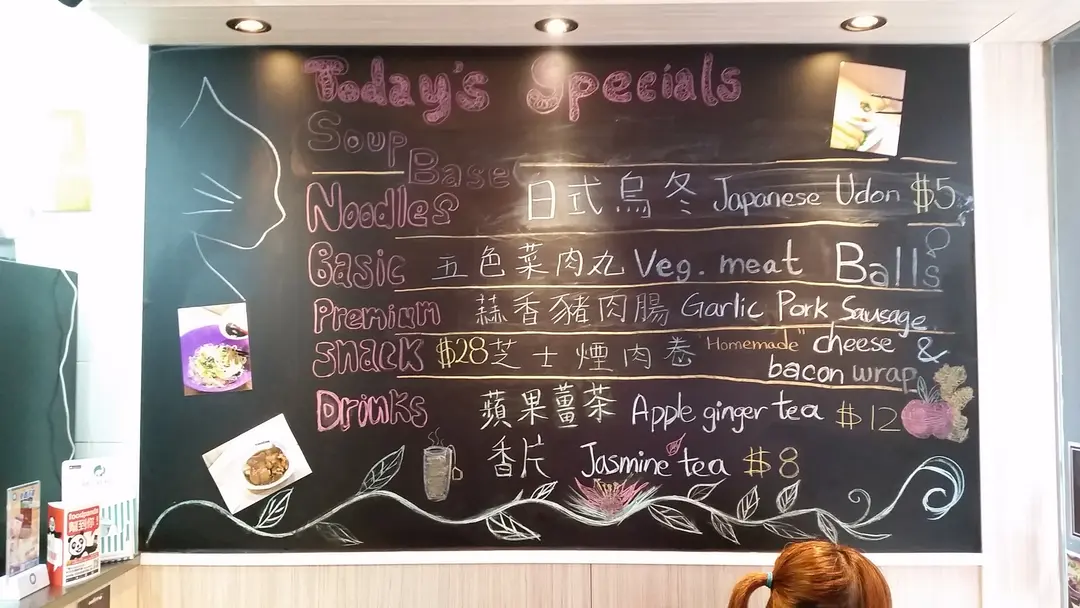 Today's Specials
Soup Base
Noodles 日式烏冬 Japanese Udon $5
Basic 五色菜肉丸 Veg. meat Balls
Premium 蒜香豬肉腸 Garlic Pork Sausage
Snack $28 芝士煙肉卷 "Homemade" cheese &
bacon wrap
Drinks 蘋果薑茶 Apple ginger tea $12
香片 Jasmine tea $8
foodpanda